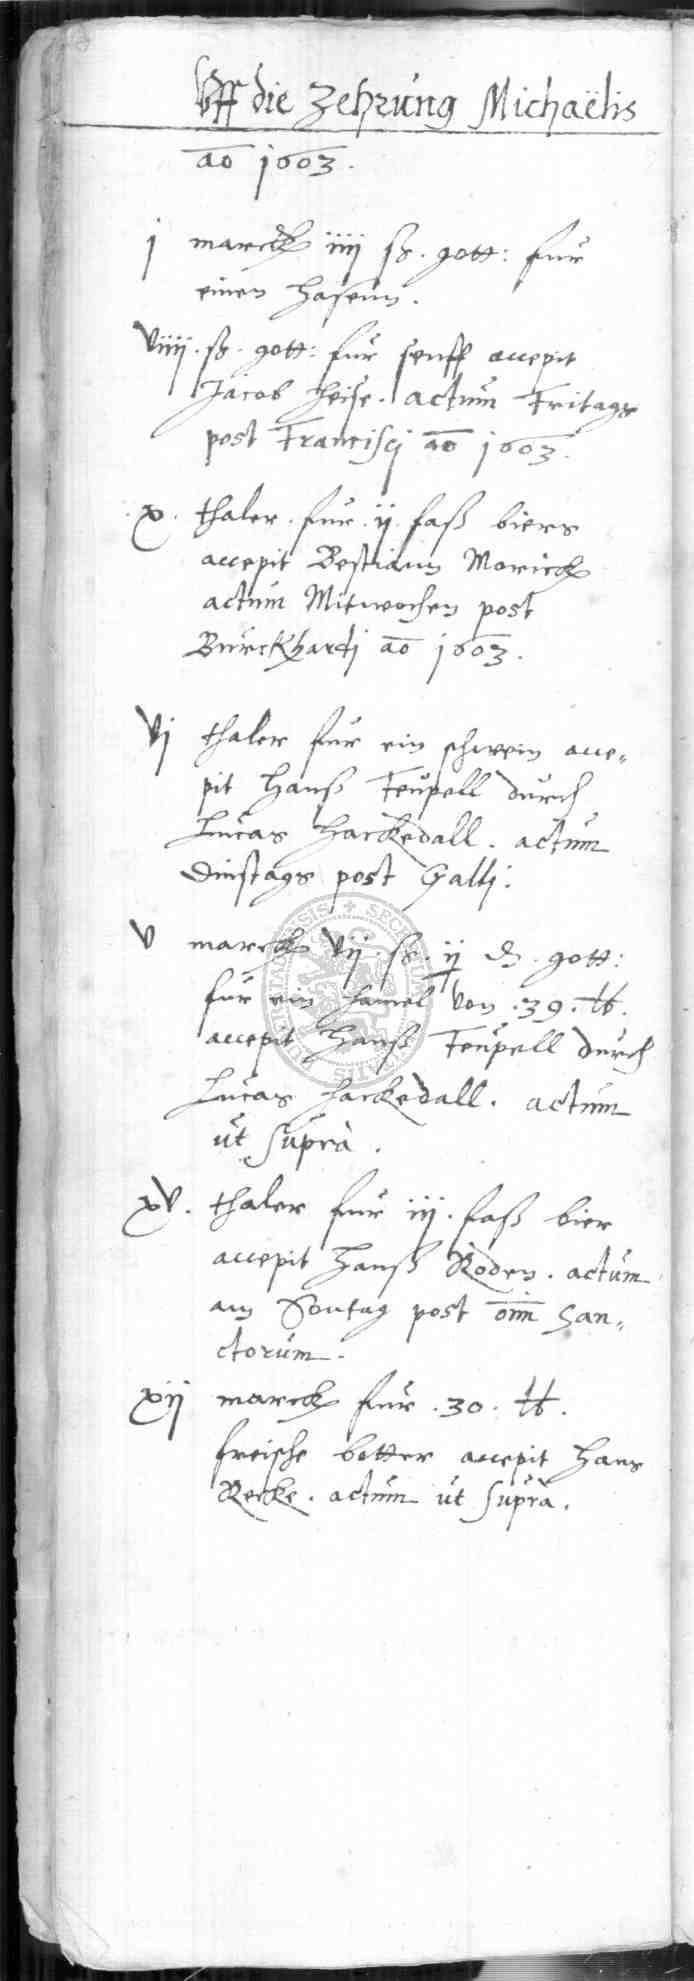 Vff die Zehrung Michaëlis
ao 1603.
j marck iiij ß. gott: fur
einen hasenn.
viiij. ß. gott: fur senff accepit
Jacob Heise. actum Fritags
post Francisci ao 1603.
x. thaler. fur. ij. faß biers
accepit Bestiann Morick
actum Mitwochen post
Burckhardj ao 1603.
vj thaler fur ein schwein acce„
pit Hanß Teupell durch
Lucas Harckedall. actum
dinstags post Gallj.
v marck vij. ß. ij ₰. gott:
fur ein hamel von .39. ℔.
accepit Hanß Teupell durch
Lucas Harckedall. actum
ut supra.
xv. thaler fur iij. faß bier
accepit Hanß Roden. actum
am Sontag post om̅ san„
ctorum.
xij marck fur .30. ℔.
freische botter accepit Hans
Recke. actum ut supra.